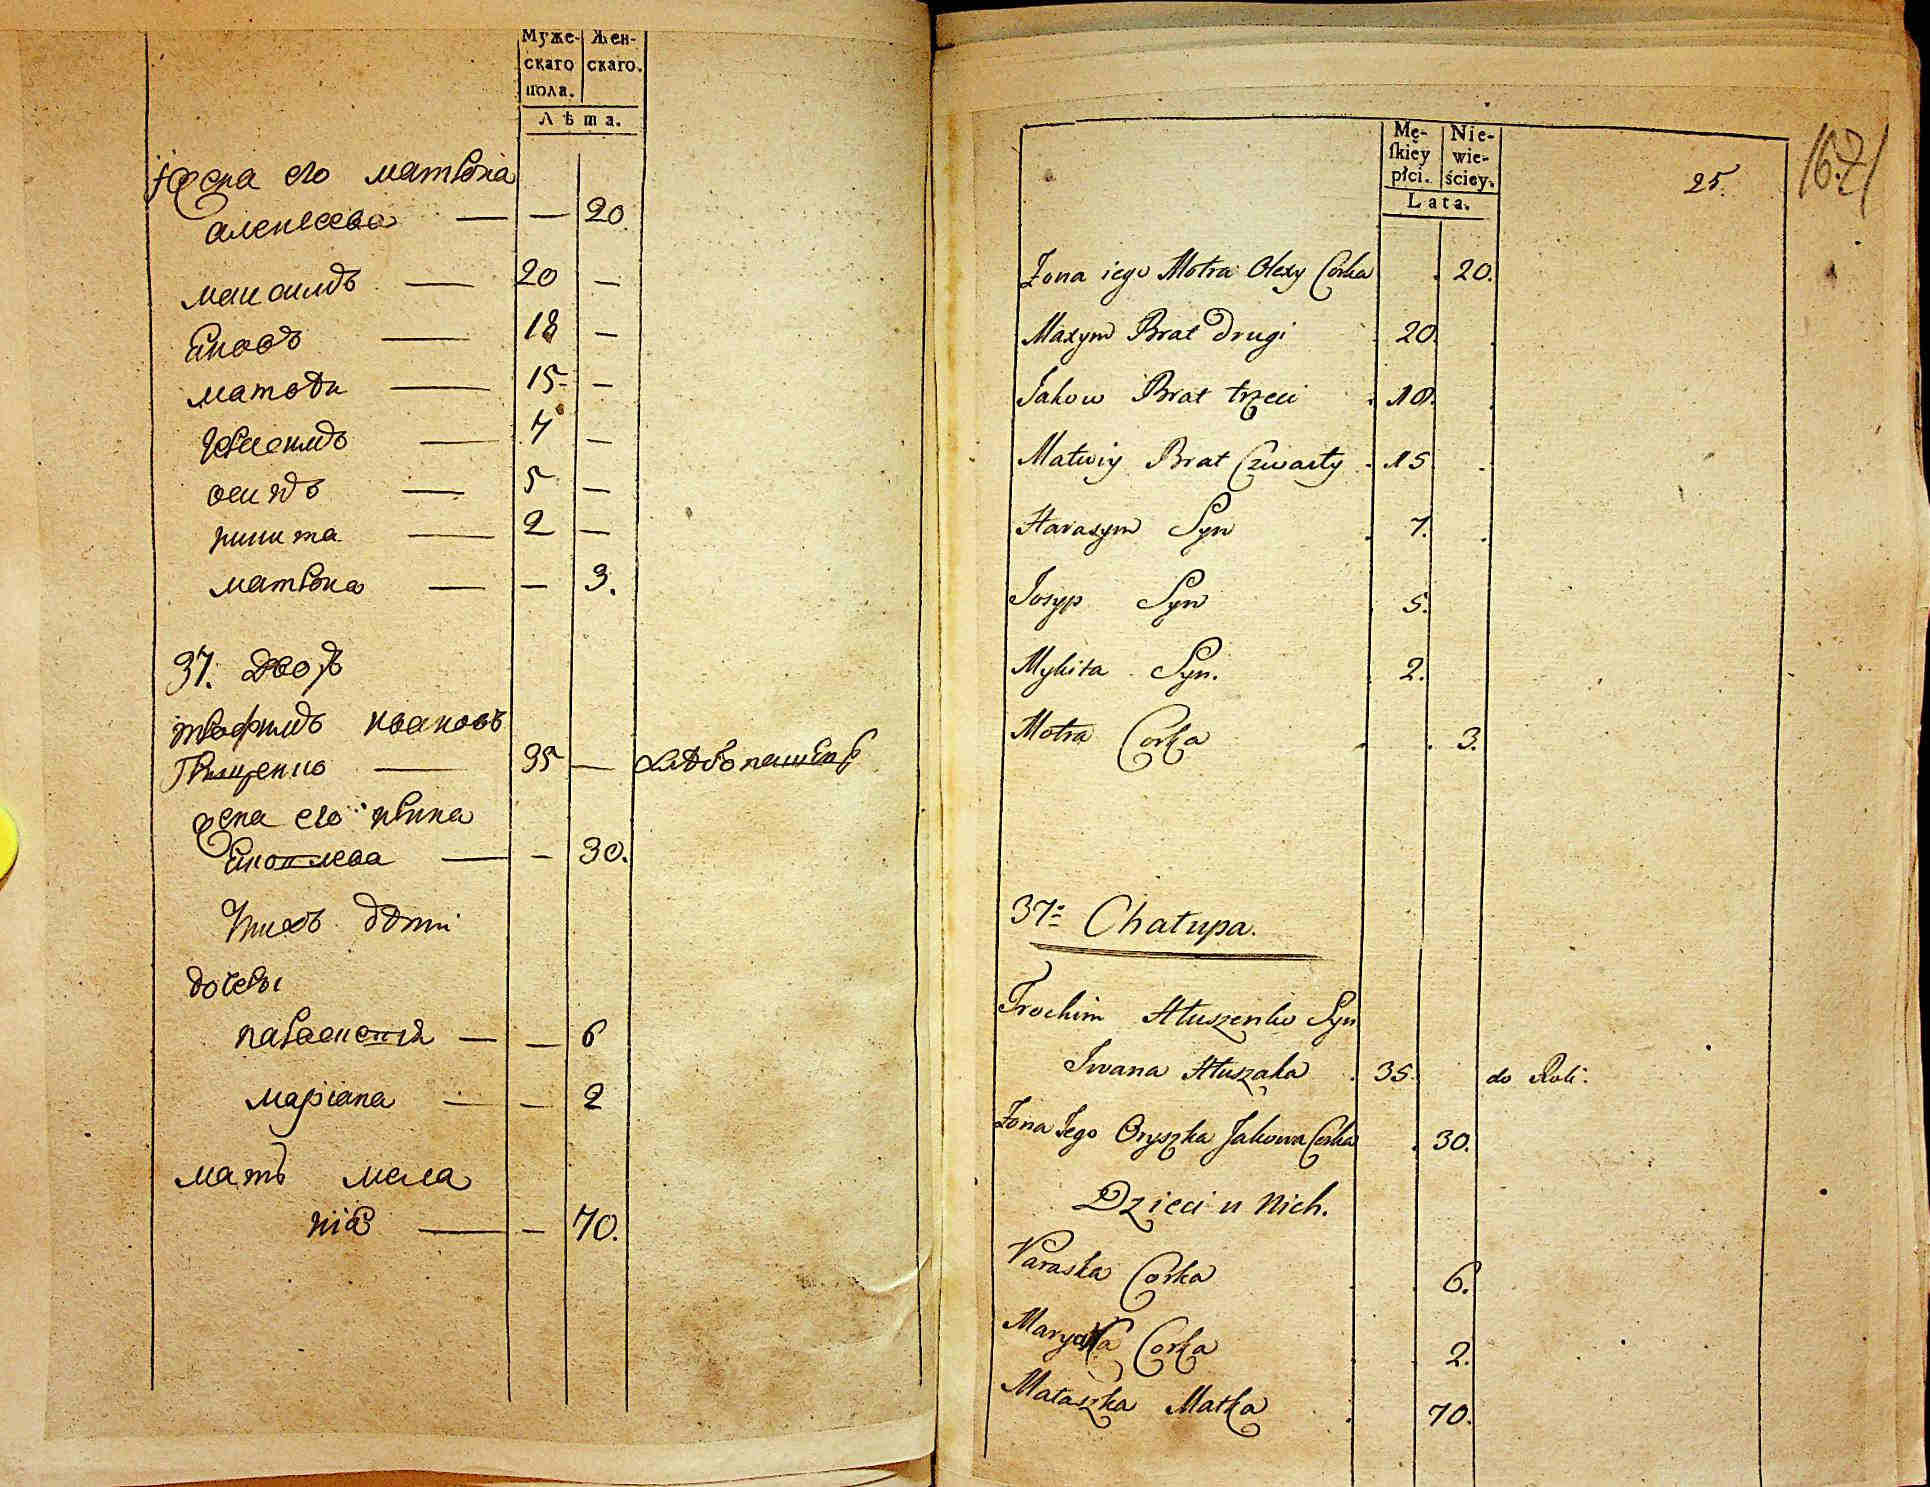 Муже-
скаго
пола.
Жен-
скаго.
Лѣта.
Жена его матрона
алексеева — — 20
максимъ — 20 —
Яковъ — 18 —
матвѣи — 15 —
герасимъ — 7 —
осипъ — 5 —
никита — 2 —
матрона — — 3.
37. дворъ
трофимъ ивановъ
— 35 — хлѣбопашецъ
жена его ирина
Яковлева — — 30.
У нихъ дѣти
дочери
парасковия — — 6
маріана — — 2
мать мела
нія — — 70.
Mę-
skiey
płci.
Nie-
wie-
ściey.
Lata.
25.
162
Żona iego Motra Olexy Corka 20.
Maxym Brat drugi 20.
Jakow Brat trzeci 18.
Matwiy Brat Czwarty 15
Harasym Syn 7.
Josyp Syn 5.
Mykita Syn. 2.
Motra Corka 3.
37: Chałupa.
Trochim Hłuszenko Syn
Iwana Hłuszaka 35. do Roli.
Żona Jego Oryszka Jakowa Corka 30.
Dzieci u Nich.
Paraska Corka 6.
Maryna Corka 2.
Małaszka Matka 70.